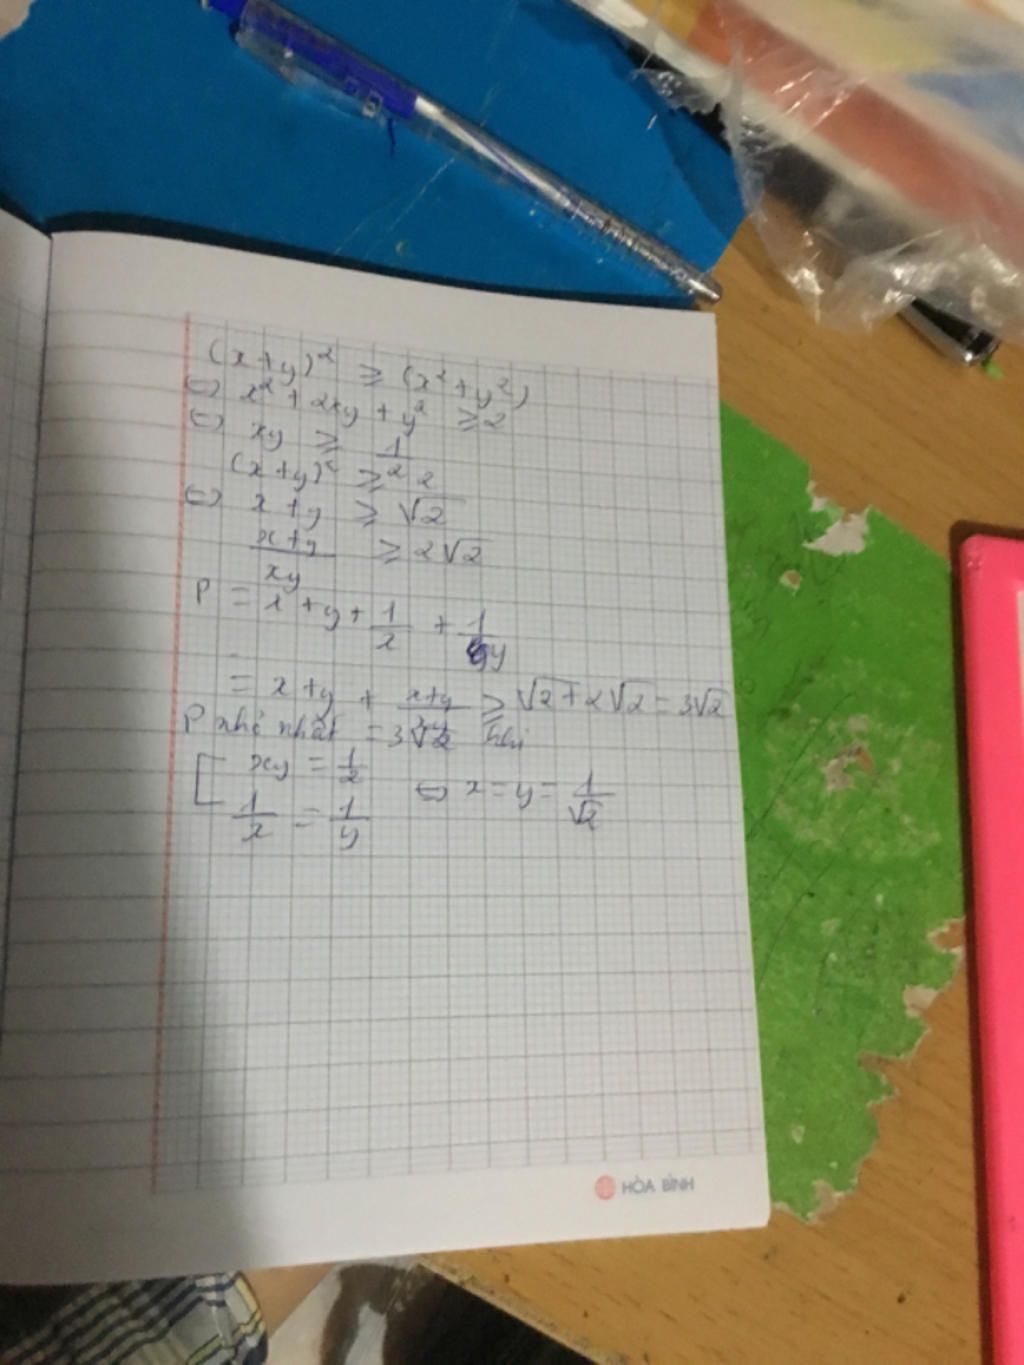 (x+y)² ≥ (x²+y²)
⇔ x² + 2xy + y² ≥ 2
⇔ xy ≥ 1/2
(x+y)² ≥ 2
⇔ x+y ≥ √2
x+y/xy ≥ 2√2
P = x + y + 1/x + 1/y
= x+y + x+y/xy ≥ √2 + 2√2 = 3√2
P nhỏ nhất = 3√2 khi
[ xy = 1/2 ⇔ x = y = 1/√2
1/x = 1/y
HÒA BÌNH